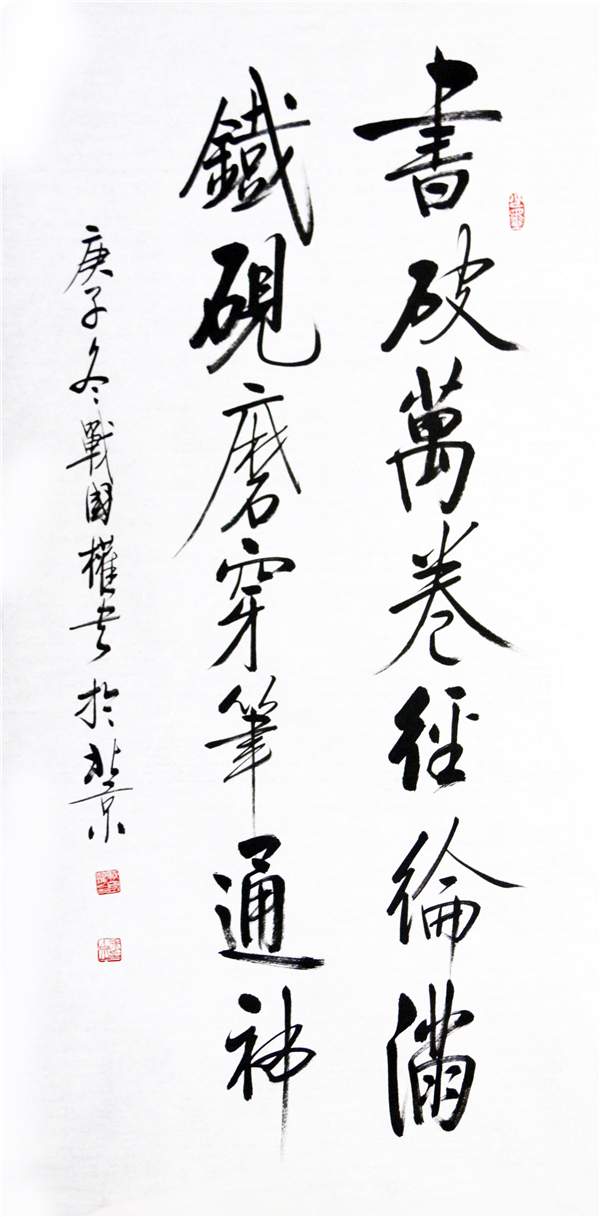 書破萬卷徑綸滿
鐵硯磨穿筆通神
庚子冬戰國權书於北京